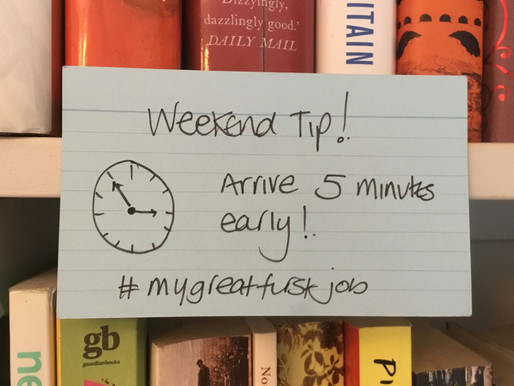 Dizzyingly,
dazzlingly good.'
DAILY MAIL
ITAIN
Weekend Tip!
Arrive 5 minutes
early!.
#mygreatfirstjob
gb
guardianbooks
ne
No